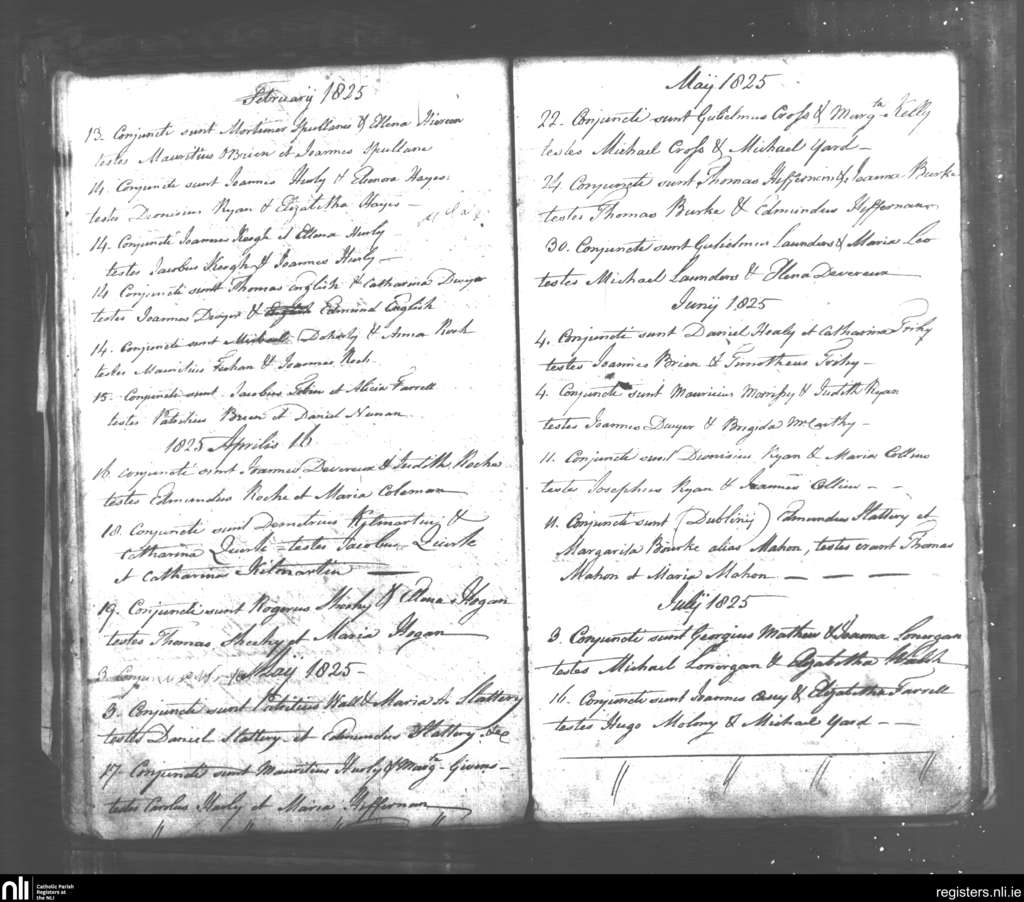 February 1825
13. Conjuncti sunt Mortimer Spullane & Ellena
testes Mauritius OBrien et Joannes Spullane
14. Conjuncti sunt Joannes Hurly & Elenora Hayes
testes Dionisius Ryan & Elizabetha Hayes —
14. Conjuncti Joannes Keogh et Ellena Hurly —
testes Jacobus Keogh & Joannes Hurly —
14 Conjuncti sunt Thomas English & Catharina Dwyer
testes Joannes Dwyer & English Edmund English
14. Conjuncti sunt Michael Doherty & Anna Roch
testes Mauritius & Joannes Roch.
15. Conjuncti sunt Jacobus et Alicia Farrell
testes Patritius Brien et Daniel Nunan
1825 Aprilis 16
16 conjuncti sunt Joannes Devereux & Judith Roche
testes Edmundus Roche et Maria Coleman
18. Conjuncti sunt Demetrius Kilmartin &
Catharina Quirk = testes Jacobus Quirk
et Catharina Kilmartin —
19. Conjuncti sunt Rogerus Sheehy & Elena Hogan
testes Thomas Sheehy et Maria Hogan
3. Conju Maij 1825
3. Conjuncti sunt Patritius Wall & Maria A. Slattery
testes Daniel Slattery et Edmundus Slattery &c
17 Conjuncti sunt Mauritius Hurly & Margta Givens —
testes Carolus Hurly et Maria Heffernan
Maij 1825
22. Conjuncti sunt Gulielmus Cross & Margta Kelly
testes Michael Cross & Michael Yard —
24. Conjuncti sunt Thomas Heffernan & Joanna Burke
testes Thomas Burke & Edmundus Heffernan
30. Conjuncti sunt Gulielmus Launders & Maria Leo
testes Michael Launders & Elena Devereux
Junij 1825
4. Conjuncti sunt Daniel Healy et Catharina
testes Joannes Brien & Timotheus
4. Conjuncti sunt Mauricius & Judith Ryan
testes Joannes Dwyer & Brigida McCarthy —
11. Conjuncti sunt Dionisius Ryan & Maria Collins
testes Josephus Ryan & Joannes Collins — —
11. Conjuncti sunt (Dublinij) Edmundus Slattery et
Margarita Bourke alias Mahon, testes erant Thomas
Mahon et Maria Mahon — — —
Julij 1825
3. Conjuncti sunt Georgius Mathew & Joanna Lonergan
testes Michael Lonergan & Elizabetha Walsh
16. Conjuncti sunt Joannes Casey & Elizabetha Farrell
testes Hugo Molony & Michael Yard — —
nli
Catholic Parish
Registers at
the NLI
registers.nli.ie